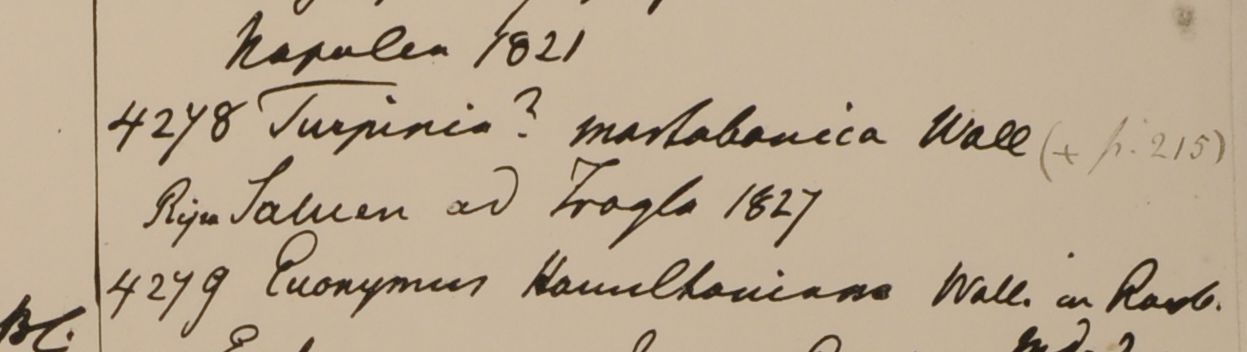 Napalea 1821
4278 Turpinia? martabanica Wall (+ p. 215)
Ripa Saluen ad Trogla 1827
4279 Euonymus Hamiltoniana Wall. in Roxb.